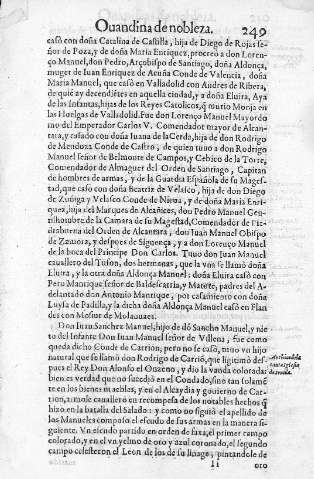 Quandina de nobleza. 249
casò con doña Catalina de Castilla, hija de Diego de Rojas se-
ñor de Poza, y de doña Maria Enriquez, procreò a don Loren-
ço Manuel, don Pedro, Arçobispo de Santiago, doña Aldonça,
muger de Iuan Enriquez de Acuña Conde de Valencia, doña
Maria Manuel, que casò en Valladolid con Andres de Ribera,
de quiẽ ay decendiẽtes en aquella ciudad, y a doña Eluira, Aya
de las Infantas, hijas de los Reyes Catolicos, q̃ murio Monja en
las Huelgas de Valladolid. Fue don Lorenço Manuel Mayordo
mo del Emperador Carlos V. Comendador mayor de Alcan-
tara, y casado con doña Iuana de la Cerda, hija de don Rodrigo
de Mendoza Conde de Castro, de quien tuuo a don Rodrigo
Manuel señor de Belmonte de Campos, y Cebico de la Torre,
Comendador de Almaguer del Orden de Santiago, Capitan
de hombres de armas, y de la Guardia Española de su Mages-
tad, que casò con doña Beatriz de Velasco, hija de don Diego
de Zuñiga y Velasco Conde de Nieua, y de doña Maria Enri-
quez, hija del Marques de Alcañices, don Pedro Manuel Gen-
tilhombre de la Camara de su Magestad, Comendador de Pie-
drabuena del Orden de Alcantara, don Iuan Manuel Obispo
de Zamora, y despues de Siguença, y a don Lorenço Manuel
de la boca del Principe Don Carlos. Tuuo don Iuan Manuel
cauallero del Tuson, dos hermanas, que la vna se llamò doña
Eluira, y la otra doña Aldonça Manuel: doña Eluira casò con
Pero Manrique señor de Baldescarria, y Matete, padres del A-
delantado don Antonio Manrique, por casamiento con doña
Luysa de Padilla, y la dicha doña Aldonça Manuel casò en Flan
des con Mosiur de
Don Iuan Sanchez Manuel, hijo de dõ Sancho Manuel, y nie
to del Infante Don Iuan Manuel señor de Villena, fue como
queda dicho Conde de Carrion, pero no se casò, tuuo vn hijo
natural que se llamò don Rodrigo de Carriõ, que ligitimò des-
pues el Rey Don Alonso el Onzeno, y dio la vanda colorada:
bien es verdad que no sucediò en el Condado, sino tan solamẽ
te en los bienes muebles, y en el Alcaydia y gouierno de Car-
rion, a mose cauallero en recompensa de los notables hechos q̃
hizo en la batalla del Salado: y como no siguiò el apellido de
los Manueles compuso el escudo de sus armas en la manera se-
guiente. Vn escudo partido en orden de faxa, el primer campo
colorado, y en el vn yelmo de oro y azul coronado, el segundo
campo celesteron el Leon de los de su linage, pintandole de
Ii oro